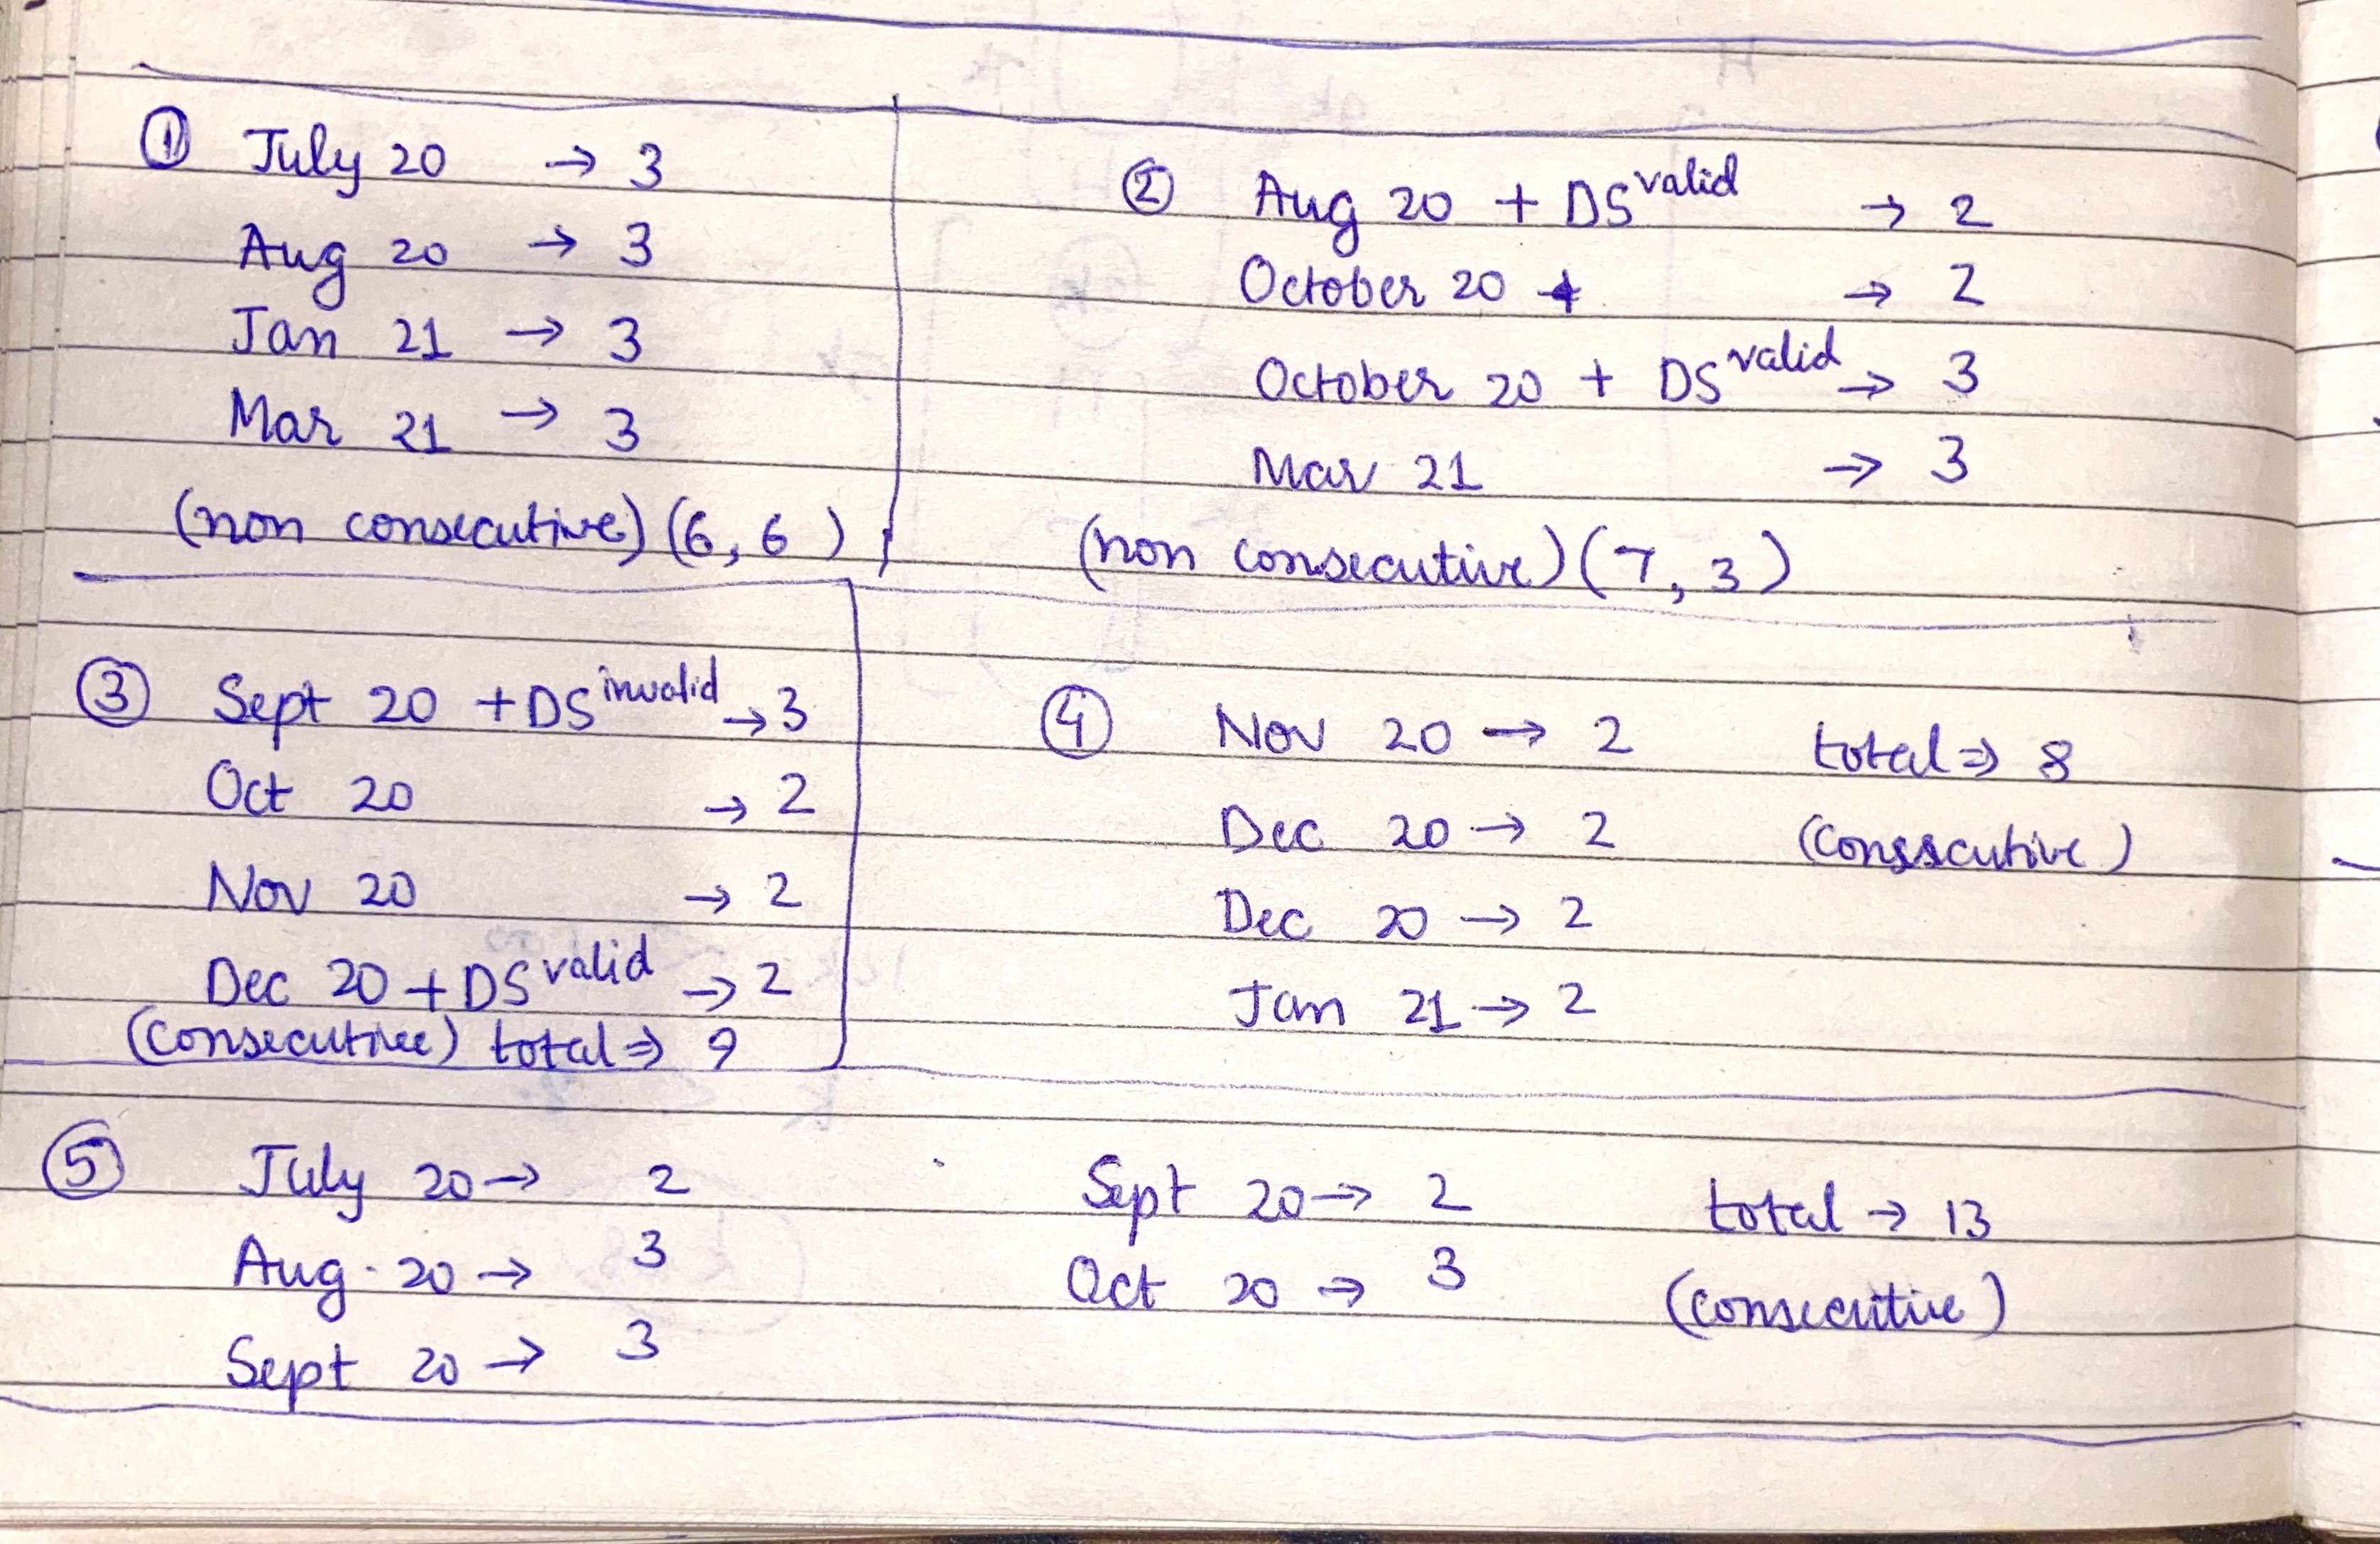 ① July 20 → 3
Aug 20 → 3
Jan 21 → 3
Mar 21 → 3
(non consecutive) (6, 6)
② Aug 20 + DS valid → 2
October 20 → 2
October 20 + DS valid → 3
Mar 21 → 3
(non consecutive) (7, 3)
③ Sept 20 + DS invalid → 3
Oct 20 → 2
Nov 20 → 2
Dec 20 + DS valid → 2
(consecutive) total ⇒ 9
④ Nov 20 → 2 total ⇒ 8
Dec 20 → 2 (consecutive)
Dec 20 → 2
Jan 21 → 2
⑤ July 20 → 2
Aug. 20 → 3
Sept 20 → 3
Sept 20 → 2 total → 13
Oct 20 → 3 (consecutive)